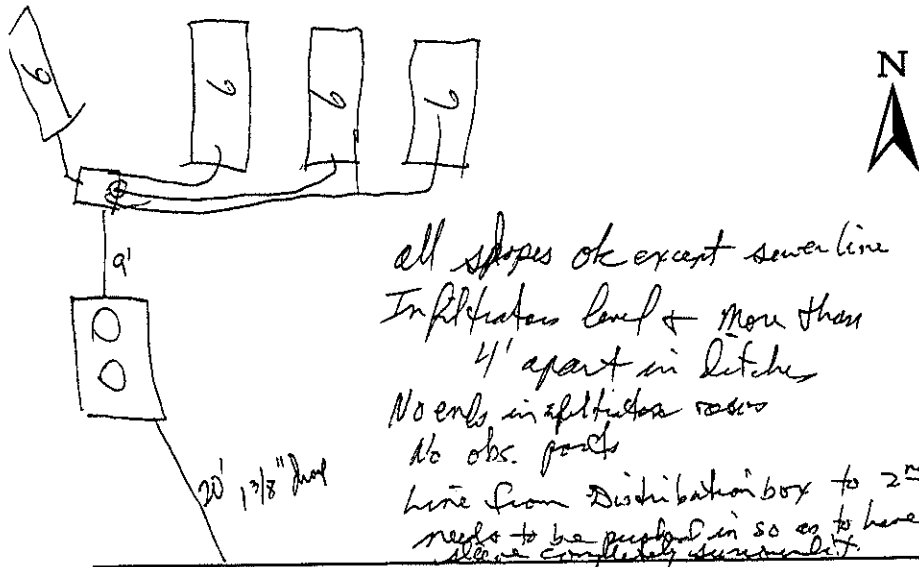 N
6
6
6
6
9'
all slopes ok except sewer line
Infiltrators level + more than
4' apart in ditches
No ends in infiltrator rows
No obs. ports
Line from Distribution box to 2n
needs to be pushed in so as to have
completely surround it.
20' 1 3/8" drop